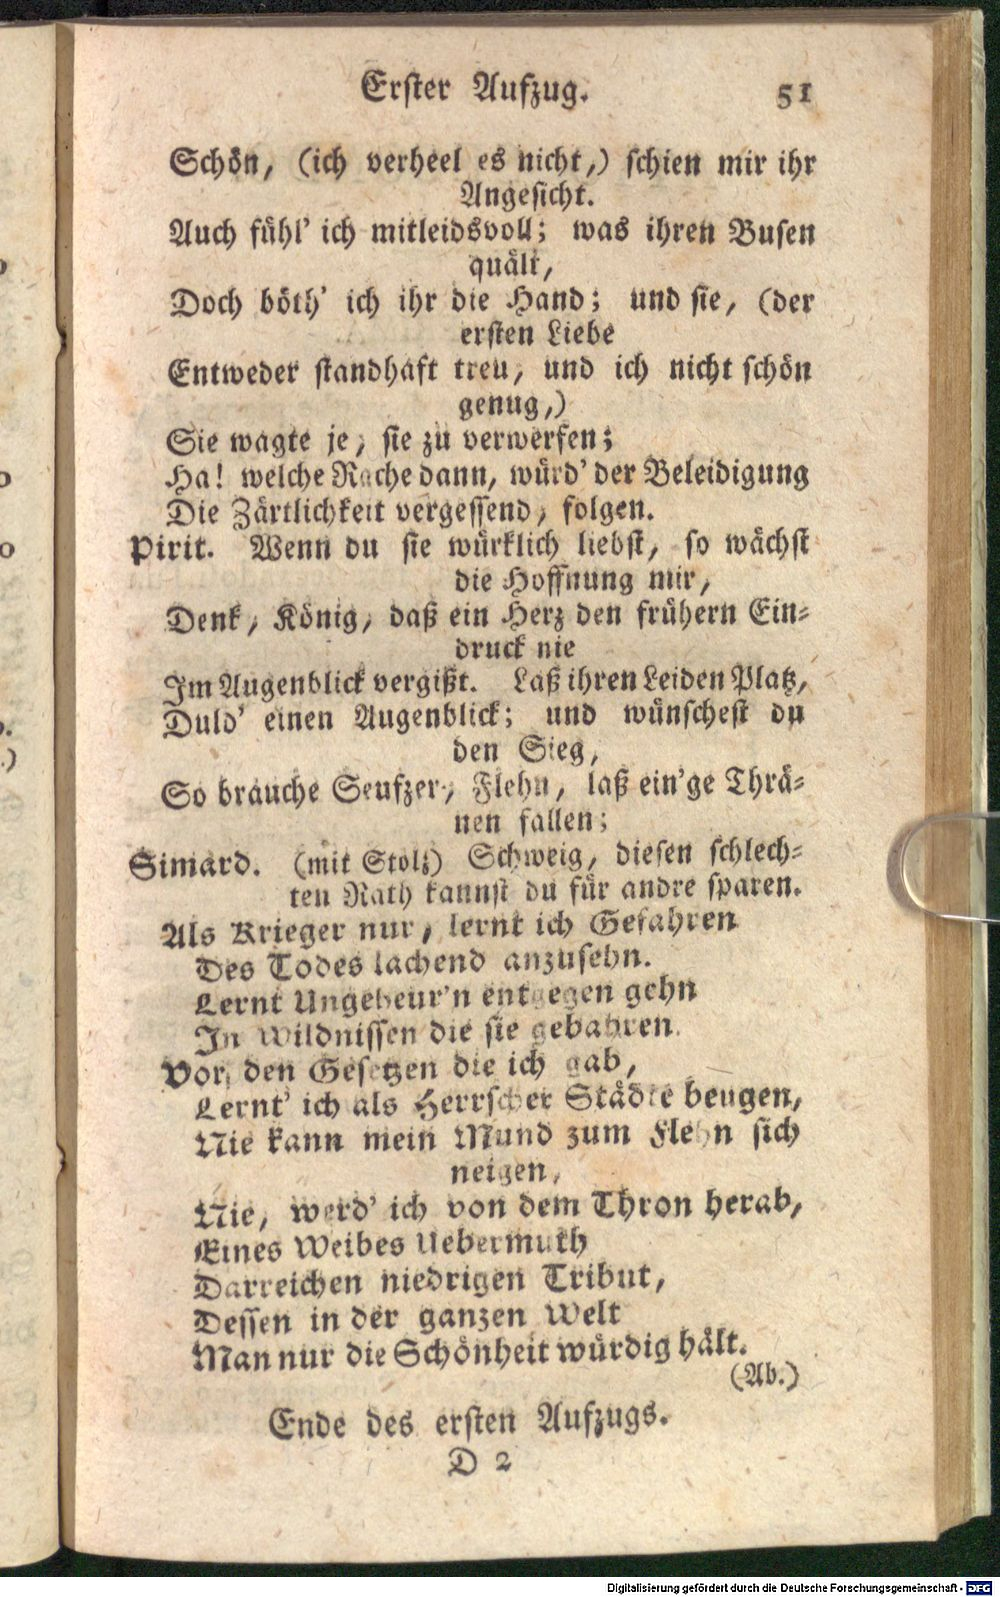 Erster Aufzug. 51
Schön, (ich verheel es nicht,) schien mir ihr
Angesicht.
Auch fühl' ich mitleidsvoll; was ihren Busen
quält,
Doch böth' ich ihr die Hand; und sie, (der
ersten Liebe
Entweder standhaft treu, und ich nicht schön
genug,)
Sie wagte je, sie zu verwerfen;
Ha! welche Rache dann, würd' der Beleidigung
Die Zärtlichkeit vergessend, folgen.
Pirit. Wenn du sie würklich liebst, so wächst
die Hoffnung mir,
Denk, König, daß ein Herz den frühern Ein-
druck nie
Im Augenblick vergißt. Laß ihren Leiden Platz,
Duld' einen Augenblick; und wünschest du
den Sieg,
So brauche Seufzer, Flehn, laß ein'ge Thrä-
nen fallen;
Simard. (mit Stolz) Schweig, diesen schlech-
ten Rath kannst du für andre sparen.
Als Krieger nur, lernt ich Gefahren
Des Todes lachend anzusehn.
Lernt Ungeheur'n entgegen gehn
In Wildnissen die sie gebahren.
Vor, den Gesetzen die ich gab,
Lernt' ich als Herrscher Städte beugen,
Nie kann mein Mund zum Flehn sich
neigen,
Nie, werd' ich von dem Thron herab,
Eines Weibes Uebermuth
Darreichen niedrigen Tribut,
Dessen in der ganzen Welt
Man nur die Schönheit würdig hält.
(Ab.)
Ende des ersten Aufzugs.
D 2
Digitalisierung gefördert durch die Deutsche Forschungsgemeinschaft - DFG